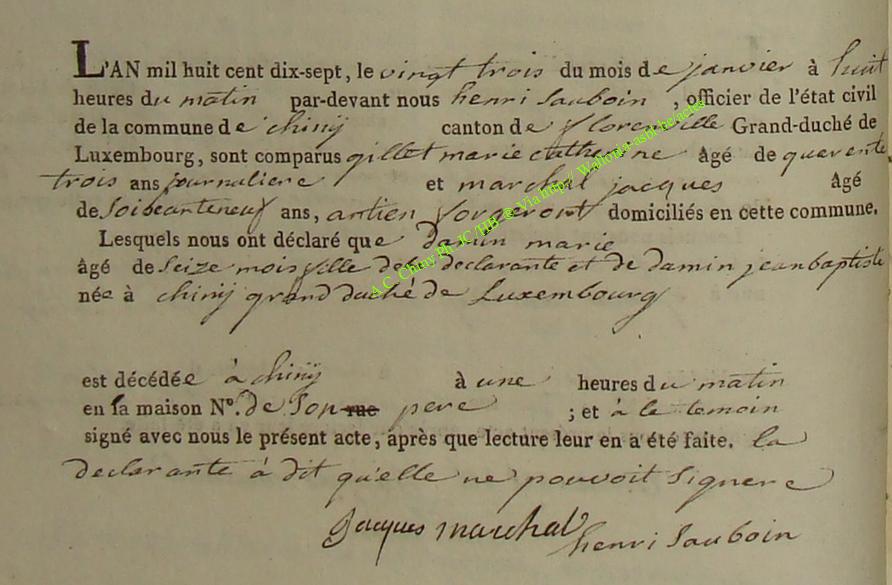 L'AN mil huit cent dix-sept, le vingt trois du mois de janvier à huit
heures du matin par-devant nous henri Sauboin, officier de l'état civil
de la commune de chinÿ canton de florenville Grand-duché de
Luxembourg, sont comparus gillet marie catherine âgé de quarente
trois ans journaliere et marchal jacques âgé
de Soixanteneuf ans, antien forgeront domiciliés en cette commune.
Lesquels nous ont déclaré que damin marie
âgé de Seize mois fille de la declarante et de damin jean baptiste
née à chinÿ grand duché de Luxembourg
est décédée à chinÿ à une heures du matin
en sa maison N°. de Son rue pere ; et à le temoin
signé avec nous le présent acte, après que lecture leur en a été faite. la
declarante à dit qu'elle ne pouvoit Signere
Jacques marchal henri Sauboin
A.C. Chiny Ph. JC /HB @ Via http:// Wallonia-asbl-be/actes